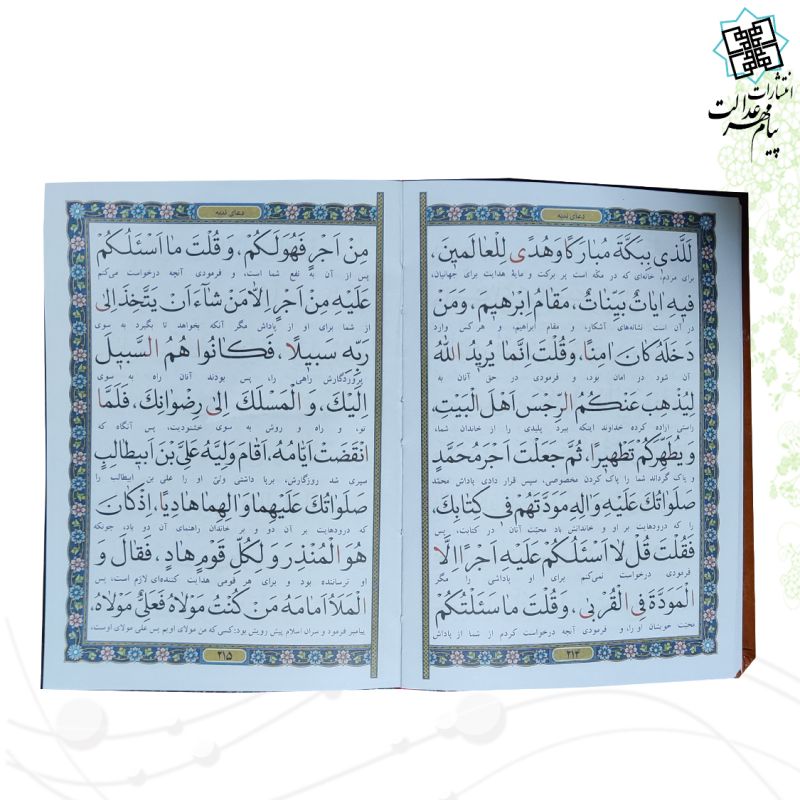 انتشارات
پیام مهر عدالت
دعای ندبه
لَلَّذی بِبَکَّةَ مُبارَکًا وَهُدًی لِلْعالَمینَ،
برای مردم! خانه‌ای که در مکّه است پر برکت و مایهٔ هدایت برای جهانیان،
فیهِ ایاتٌ بَیِّناتٌ، مَقامُ اِبْرهیمَ، وَمَنْ
در آن است نشانه‌های آشکار، و مقام ابراهیم، و هر کس وارد
دَخَلَهُ کانَ امِنًا، وَقُلْتَ اِنَّما یُریدُ اللهُ
آن شود در امان بود، و فرمودی در حق آنان به
لِیُذْهِبَ عَنْکُمُ الرِّجْسَ اَهْلَ الْبَیْتِ،
راستی اراده کرده خداوند اینکه ببرد پلیدی را از خاندان شما،
وَ یُطَهِّرَکُمْ تَطْهیرًا، ثُمَّ جَعَلْتَ اَجْرَ مُحَمَّدٍ
و پاک گرداند شما را پاک کردن مخصوصی، سپس قرار دادی پاداش محمّد
صَلَواتُکَ عَلَیْهِ وَالِهِ مَوَدَّتَهُمْ فی کِتابِکَ،
را که درودهایت بر او و خاندانش باد محبّت آنان در کتابت، پس
فَقُلْتَ قُلْ لا اَسْئَلُکُمْ عَلَیْهِ اَجْرًا اِلَّا
فرمودی درخواست نمی‌کنم برای او پاداشی را مگر
الْمَوَدَّةَ فِی الْقُرْبی، وَقُلْتَ ما سَئَلْتُکُمْ
محبّت خویشان او را، و فرمودی آنچه درخواست کردم از شما از پاداش
۲۱۴
دعای ندبه
مِنْ اَجْرٍ فَهُوَلَکُمْ، وَ قُلْتَ ما اَسْئَلُکُمْ
پس از آن به نفع شما است، و فرمودی آنچه درخواست می‌کنم
عَلَیْهِ مِنْ اَجْرٍ اِلّا مَنْ شآءَ اَنْ یَتَّخِذَ اِلی
از شما برای او از پاداش مگر آنکه بخواهد تا بگیرد به سوی
رَبِّهِ سَبیلًا، فَکانُوا هُمُ السَّبیلَ
پروردگارش راهی را، پس بودند آنان راه به سوی
اِلَیْکَ، وَ الْمَسْلَکَ اِلی رِضْوانِکَ، فَلَمَّا
تو، و راه و روش به سوی خشنودیت، پس آنگاه که
انْقَضَتْ اَیّامُهُ، اَقامَ وَلِیَّهُ عَلِیَّ بْنَ اَبیطالِبٍ
سپری شد روزگارش، برپا داشتی ولیّ او را علی بن ابیطالب را
صَلَواتُکَ عَلَیْهِما وَ الِهِما هادِیًا، اِذْ کانَ
که درودهایت بر آن دو و بر خاندان راهنمای آن دو باد، چونکه
هُوَ الْمُنْذِرَ وَ لِکُلِّ قَوْمٍ هادٍ، فَقالَ وَ
او ترساننده بود و برای هر قومی هدایت کننده‌ای لازم است، پس
الْمَلَأُ اَمامَهُ مَنْ کُنْتُ مَوْلاهُ فَعَلِیٌّ مَوْلاهُ،
پیامبر فرمود و سران اسلام پیش رویش بود: کسی که من مولای اویم پس علی مولای اوست،
۲۱۵